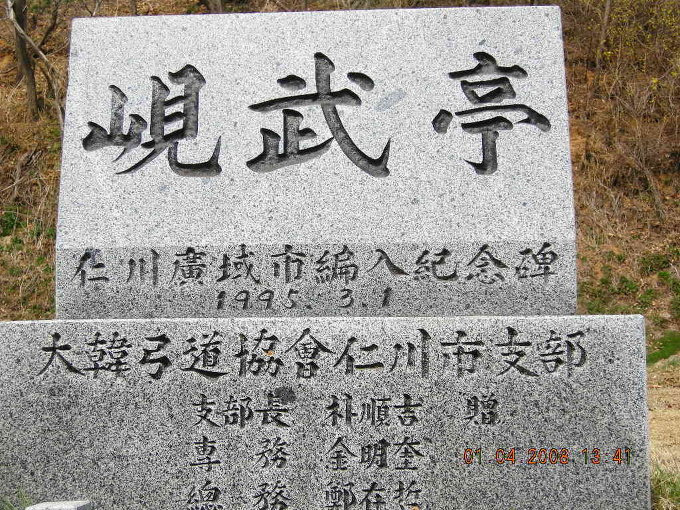 峴武亭
仁川廣域市編入紀念碑
1995. 3. 1
大韓弓道協會仁川市支部
支部長 朴順吉 贈
專務 金明奎
總務 鄭在哲
01 04 2008 13 41